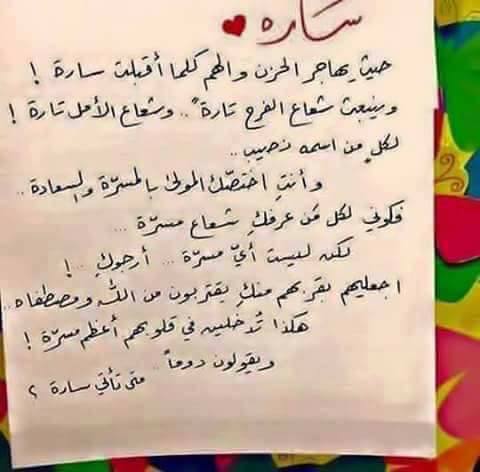 سَارَه
حيث يهاجر الحزن والهم كلما أقبلت سارة !
وينبعث شعاع الفرح تارةً .. وشعاع الأمل تارة !
لكلٍ من اسمه نصيب ..
وأنتِ اختصّك المولى بالمسرّة والسعادة ..
فكوني لكل من عرفكِ شعاع مسرّة ...
لكن ليست أيّ مسرّة ... أرجوكِ .. !
اجعليهم بقربهم منكِ يقتربون من الله ومصطفاه ..
هكذا تُدخلين في قلوبهم أعظم مسرّة !
ويقولون دوماً ..
متى تأتي سارة ؟